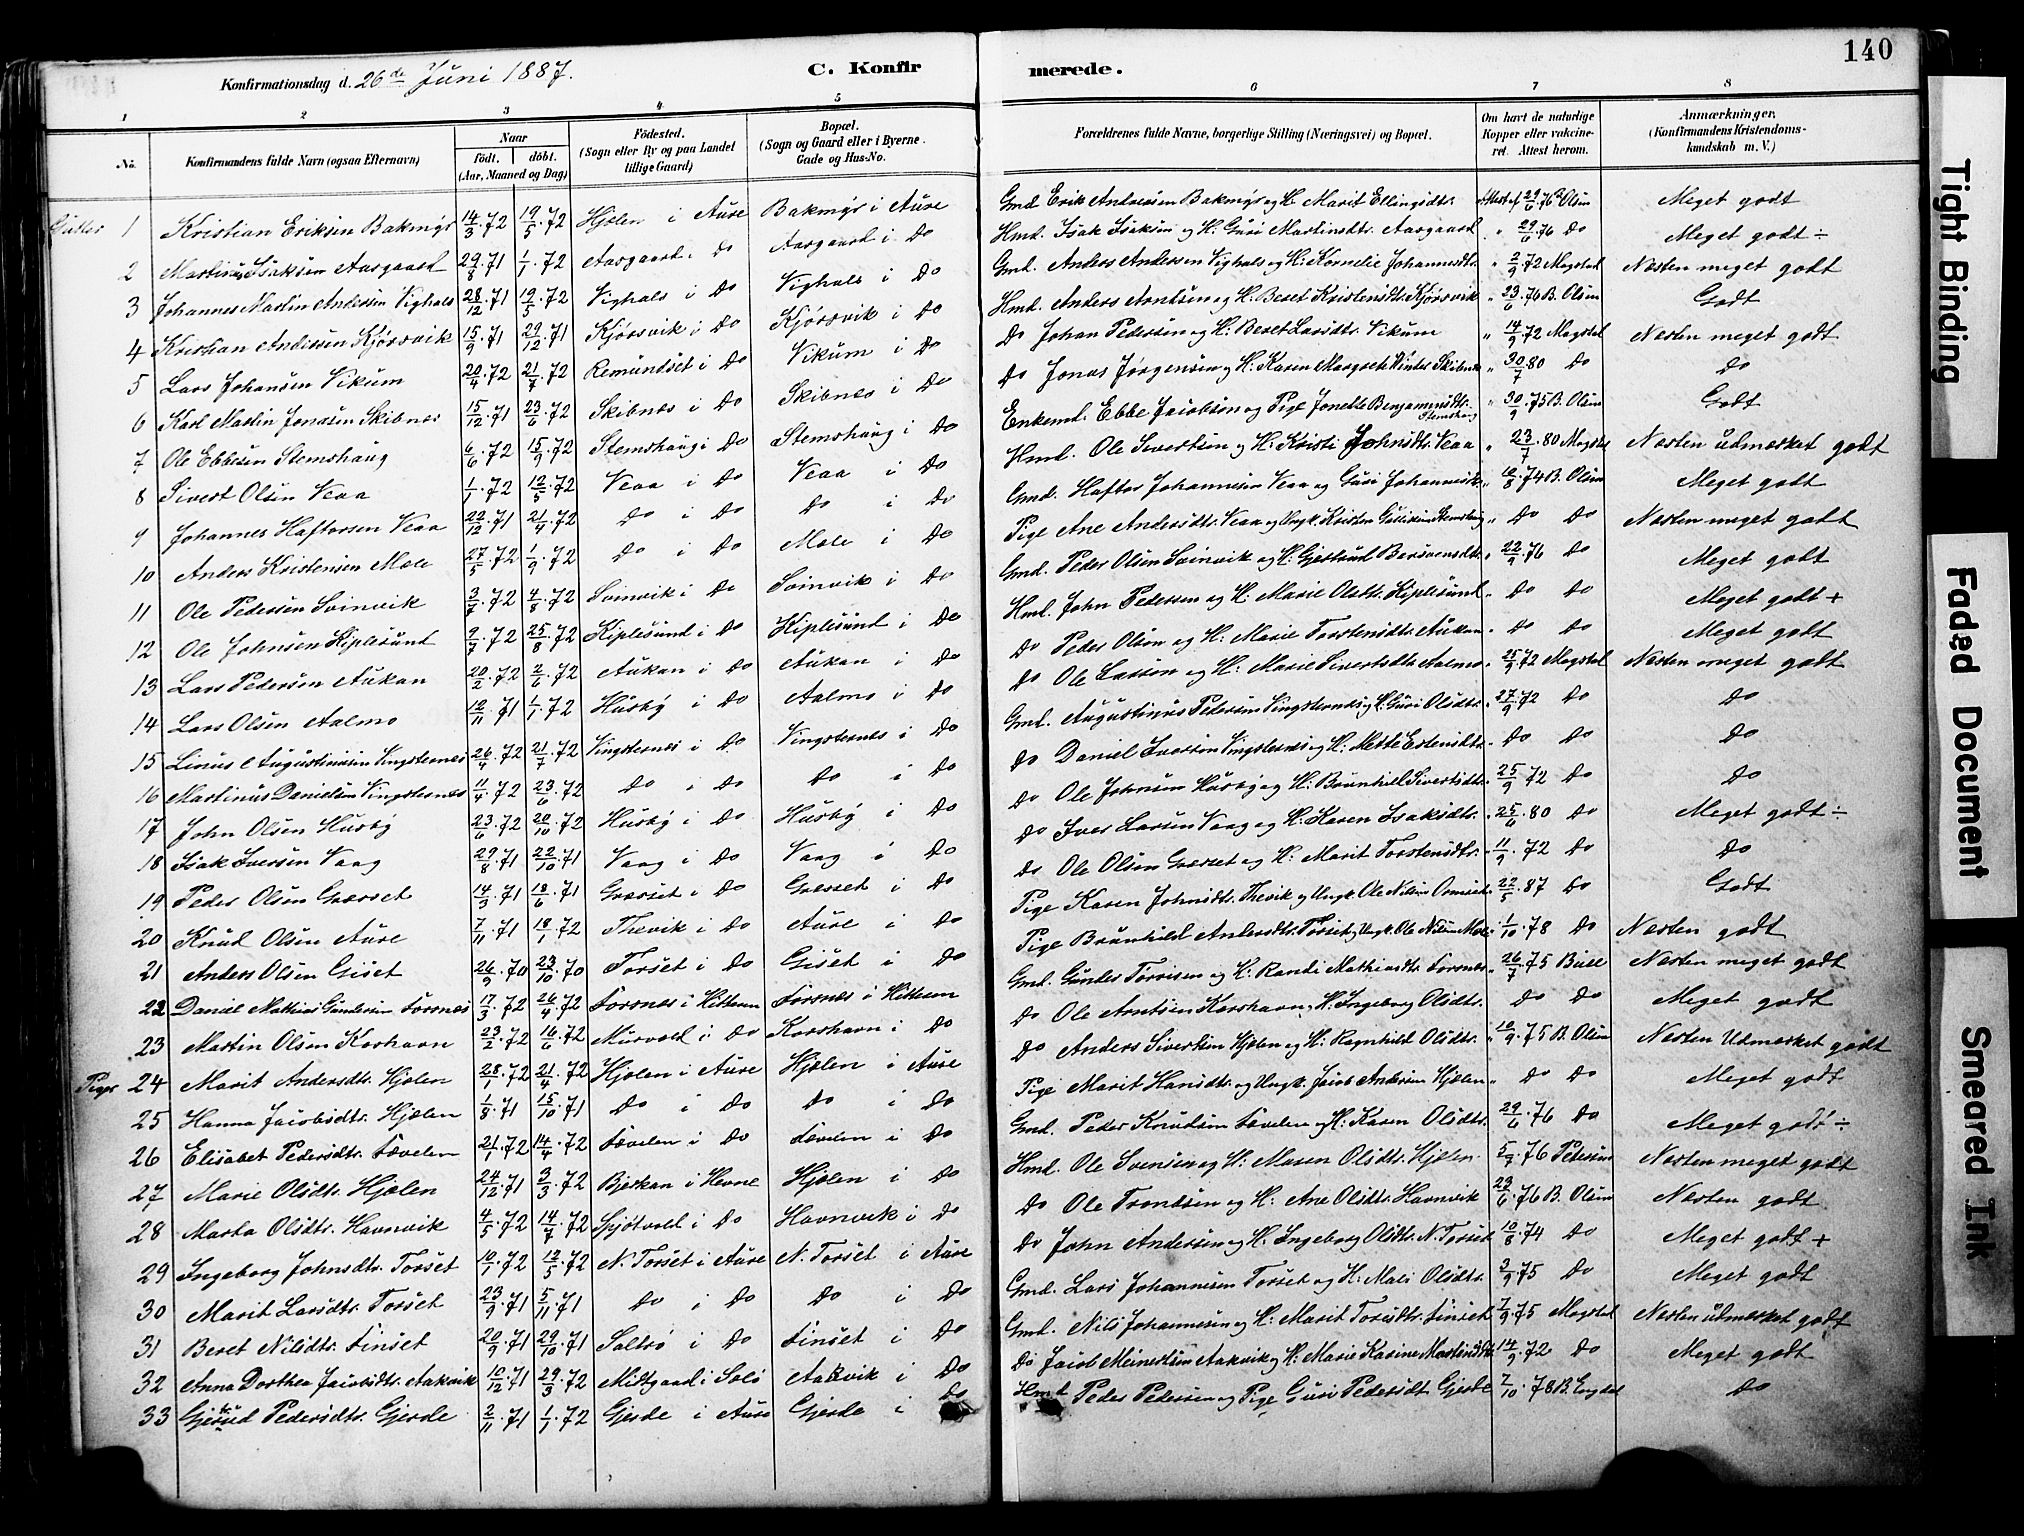 140
Konfirmationsdag d. 26de Juni 1887.
C. Konfirmerede.
1 2 3 4 5 6 7 8
No. Konfirmandens fulde Navn (ogsaa Efternavn) Naar født. døbt. (Aar, Maaned og Dag) Fødested. (Sogn eller By og paa Landet tillige Gaard) Bopæl. (Sogn og Gaard eller i Byerne Gade og Hus-No. Forældrenes fulde Navne, borgerlige Stilling (Næringsvei) og Bopæl. Om havt de naturlige Kopper eller vakcineret. Attest herom. Anmærkninger. (Konfirmandens Kristendomskundskab m. V.)
Gutter 1 Kristian Eriksen Bakmyr 14/3.72 19/5.72 Hjelen i Aure Bakmyr i Aure Gmd. Erik Andersen Bakmyr og H. Marit Ellingsdtr. Attest af 29/6.76 B. Olsen Meget godt
2 Martinus Isaksen Aasgaard 29/8.71 1/1.72 Aasgaard i Do Aasgaard i Do Hmd. Isak Isaksen og H. Guri Martinsdtr. Aasgaard " 29/6.76 Do Meget godt ÷
3 Johannes Martin Andersen Vighals 28/12.71 19/5.72 Vighals i Do Vighals i Do Gmd. Anders Andersen Vighals og H. Kornelie Johannesdtr. " 2/9.72 Magstad Næsten meget godt
4 Kristian Andersen Kjørsvik 15/9.71 29/12.71 Kjørsvik i Do Kjørsvik i Do Hmd. Anders Arntsen og H. Beret Kristensdtr. Kjørsvik " 23/6.76 B. Olsen Godt
5 Lars Johansen Vikum 20/4.72 21/7.72 Remundset i Do Vikum i Do Do Johan Pedersen og H: Beret Larsdtr. Vikum " 14/9.72 Magstad Næsten meget godt
6 Karl Martin Jonasen Skibnes 15/12.71 23/6.72 Skibnes i Do Skibnes i Do Do Jonas Jørgensen og H: Karen Margrete Vinter Skibnes " 30/7.80 Do Do
7 Ole Ebbesen Stemshaug 6/6.72 15/9.72 Stemshaug i Do Stemshaug i Do Enkemd. Ebbe Jacobsen og Pige Jonette Benjaminsdtr. Stemshaug " 30/9.75 B. Olsen Godt
8 Sivert Olsen Veaa 1/1.72 12/5.72 Veaa i Do Veaa i Do Hmd. Ole Sivertsen og H: Kristi Johnsdtr. Veaa " 23/7.80 Magstad Næsten udmærket godt
9 Johannes Haftorsen Veaa 22/12.71 21/4.72 Do i Do Do i Do Gmd. Haftor Johannesen Veaa og Guri Johannesdtr. " 10/8.74 B. Olsen Meget godt
10 Anders Kristensen Mele 27/5.72 1/9.72 Do i Do Mele i Do Pige Ane Andersdtr. Veaa og Ungk. Kristen Stemshaug " Do Do Næsten meget godt
11 Ole Pedersen Svinvik 3/7.72 4/8.72 Svinvik i Do Svinvik i Do Gmd. Peder Olsen Svinvik og H. Gjertrud Bersvensdtr. " 22/9.76 Do Meget godt
12 Ole Johnsen Kiplesund 9/7.72 25/8.72 Kiplesund i Do Kiplesund i Do Hmd. John Pedersen og H. Marie Olsdtr. Kiplesund " Do Do Meget godt +
13 Lars Pedersen Aukan 20/2.72 2/6.72 Aukan i Do Aukan i Do Do Peder Olsen og H: Marie Torstensdtr. Aukan " Do Do Meget godt
14 Lars Olsen Aalmo 12/11.71 1/1.72 Husby i Do Aalmo i Do Do Ole Larsen og H: Marie Sivertsdtr. Aalmo " 25/9.72 Magstad Næsten meget godt
15 Linus Augustinusen Vingsternes 26/4.72 21/7.72 Vingsternes i Do Vingsternes i Do Gmd. Augustinus Pedersen Vingsternes og H. Guri Olsdtr. " 27/9.72 Do Do
16 Martinus Danielsen Vingsternes 11/4.72 23/6.72 Do i Do Do i Do Do Daniel Iversen Vingsternes og H: Mette Estensdtr. " Do Do Do
17 John Olsen Husby 23/6.72 20/10.72 Husby i Do Husby i Do Do Ole Johnsen Husby og H: Brunhild Sivertsdtr. " 25/9.72 Do Do
18 Isak Iversen Vaag 29/8.71 22/10.71 Vaag i Do Vaag i Do Do Iver Larsen Vaag og H. Karen Isaksdtr. " 25/6.80 Do Meget godt ÷
19 Peder Olsen Grærset 14/3.71 18/6.71 Grærset i Do Grærset i Do Do Ole Olsen Grærset og H. Marit Torstensdtr. " 11/9.72 Do Do
20 Knud Olsen Aure 7/11.71 18/1.72 Thevik i Do Aure i Do Pige Karen Johnsdtr. Thevik og Ungk. Ole Nilsen " 22/5.87 Do Godt
21 Anders Olsen Giset 26/9.70 23/10.70 Torset i Do Giset i Do Pige Brunhild Andersdtr. Torset og Ungk. Ole Nilsen Mele " 1/10.78 Do Næsten godt
22 Daniel Mathias Gundersen Forsnes 17/3.72 26/4.72 Forsnes i Hitteren Forsnes i Hitteren Gmd. Gunder Torrisen og H. Randi Mathiasdtr. Forsnes " 26/7.75 Buse Næsten meget godt
23 Martin Olsen Korshavn 23/2.72 16/6.72 Murvold i Do Korshavn i Do Do Ole Arntsen Korshavn, H. Ingeborg Olsdtr. Do Do Meget godt
Piger 24 Marit Andersdtr. Hjelen 28/1.72 21/4.72 Hjelen i Aure Hjelen i Aure Do Anders Sivertsen Hjelen og H: Ragnhild Olsdtr. " 10/9.75 B. Olsen Næsten Udmærket godt
25 Hanna Jacobsdtr. Hjelen 1/8.71 15/10.71 Do i Do Do i Do Pige Marit Hansdtr. og Ungk. Jacob Andersen Hjelen " Do Do Meget godt
26 Elisabet Pedersdtr. Levelen 21/1.72 14/4.72 Levelen i Do Levelen i Do Gmd. Peder Knudsen Levelen og H. Karen Olsdtr. 29/6.76 Do Meget godt ÷
27 Marie Olsdtr. Hjelen 24/12.71 3/3.72 Bjerkan i Hevne Hjelen i Do Hmd. Ole Svensen og H. Maren Olsdtr. Hjelen 5/7.76 Petersen Næsten meget godt
28 Marta Olsdtr. Havnvik 4/5.72 14/7.72 Spjøtvold i Do Havnvik i Do Do Ole Trondsen og H: Ane Olsdtr. Havnvik 23/6.76 B. Olsen Næsten godt
29 Ingeborg Johnsdtr. Torset 10/1.72 12/5.72 N. Torset i Aure N. Torset i Aure Do John Andersen og H. Ingeborg Olsdtr. N. Torset 10/8.74 Do Meget godt +
30 Marit Larsdtr. Torset 23/9.71 5/11.71 Do i Do Do i Do Gmd. Lars Johannesen Torset og H. Mali Olsdtr. 3/9.75 Do Meget godt
31 Beret Nilsdtr. Finset 20/9.71 29/10.71 Saltrø i Do Finset i Do Gmd. Nils Johannesen og H. Marit Torsdtr. Finset 7/9.75 Magstad Næsten udmærket godt
32 Anna Dorthea Jacobsdtr. Aakvik 10/12.71 29/3.72 Midtgaard i Solø Aakvik i Do Do Jacob Meinertsen Aakvik og H. Marie Karine Martinsdtr. 14/9.72 Do Meget godt
33 Gjertrud Pedersdtr. Gjerde 2/11.71 1/1.72 Gjerde i Aure Gjerde i Do Hmd Peder Pedersen og Pige Guri Pedersdt. Gjerde 7/10.78 B. Engdal Do
Tight Binding
Faded Document
Smeared Ink